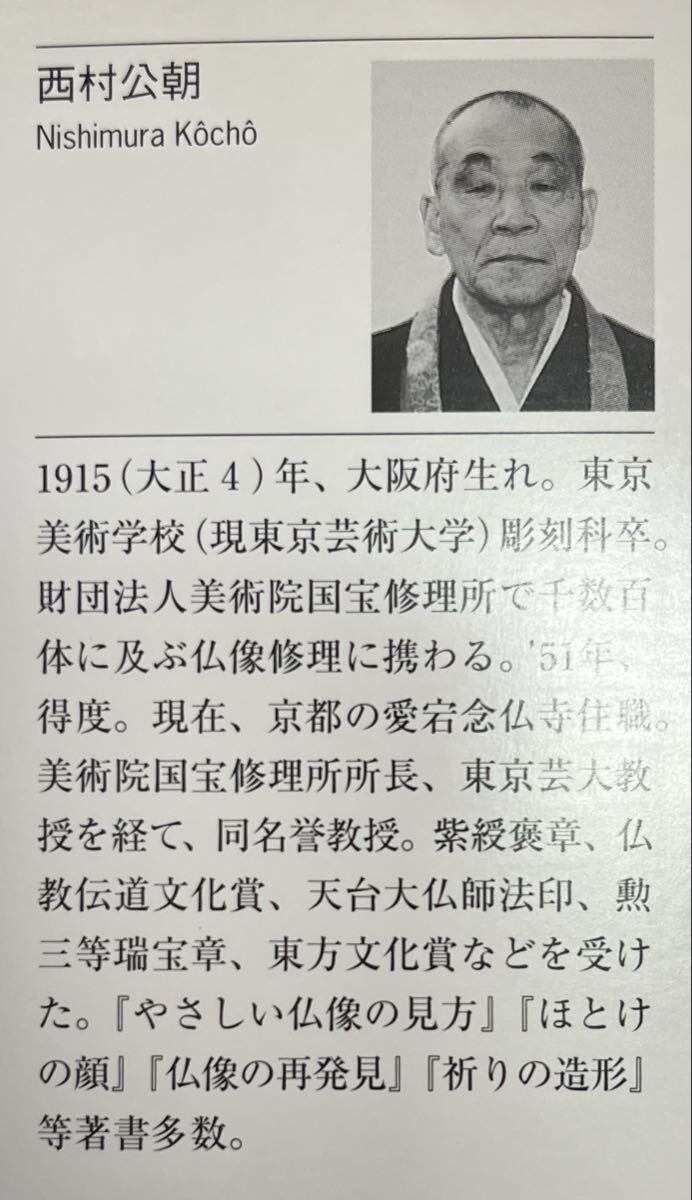 西村公朝
Nishimura Kôchô
1915(大正4)年、大阪府生れ。東京
美術学校(現東京芸術大学)彫刻科卒。
財団法人美術院国宝修理所で千数百
体に及ぶ仏像修理に携わる。'51年、
得度。現在、京都の愛宕念仏寺住職。
美術院国宝修理所所長、東京芸大教
授を経て、同名誉教授。紫綬褒章、仏
教伝道文化賞、天台大仏師法印、勲
三等瑞宝章、東方文化賞などを受け
た。『やさしい仏像の見方』『ほとけ
の顔』『仏像の再発見』『祈りの造形』
等著書多数。